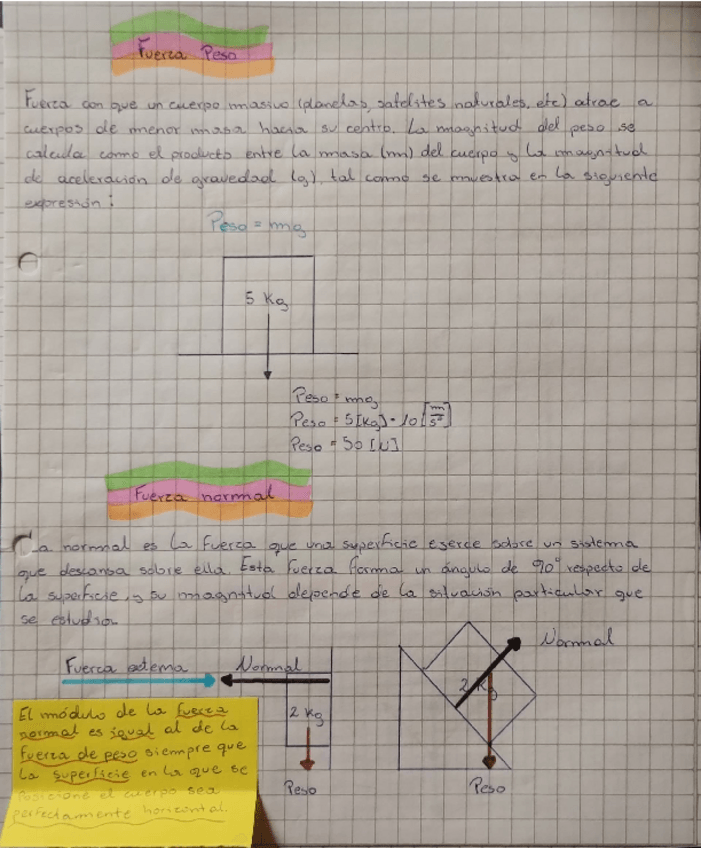 Fuerza Peso
Fuerza con que un cuerpo masivo (planetas, satelites naturales, etc) atrae a
cuerpos de menor masa hacia su centro. La magnitud del peso se
calcula como el producto entre la masa (m) del cuerpo y la magnitud
de aceleración de gravedad (g), tal como se muestra en la siguiente
expresión:
Peso = mg
5 Kg
Peso = mg
Peso = 5[Kg] · 10 [m/s²]
Peso = 50 [N]
Fuerza normal
La normal es la fuerza que una superficie eserce sobre un sistema
que descansa sobre ella. Esta fuerza forma un ángulo de 90° respecto de
la superficie, y su magnitud depende de la situación particular que
se estudia
Fuerca externa
Normal
2 Kg
Peso
Normal
2 Kg
Peso
El módulo de la fuerza
normal es igual al de la
fuerza de peso siempre que
la superficie en la que se
posicione el cuerpo sea
perfectamente horizontal.